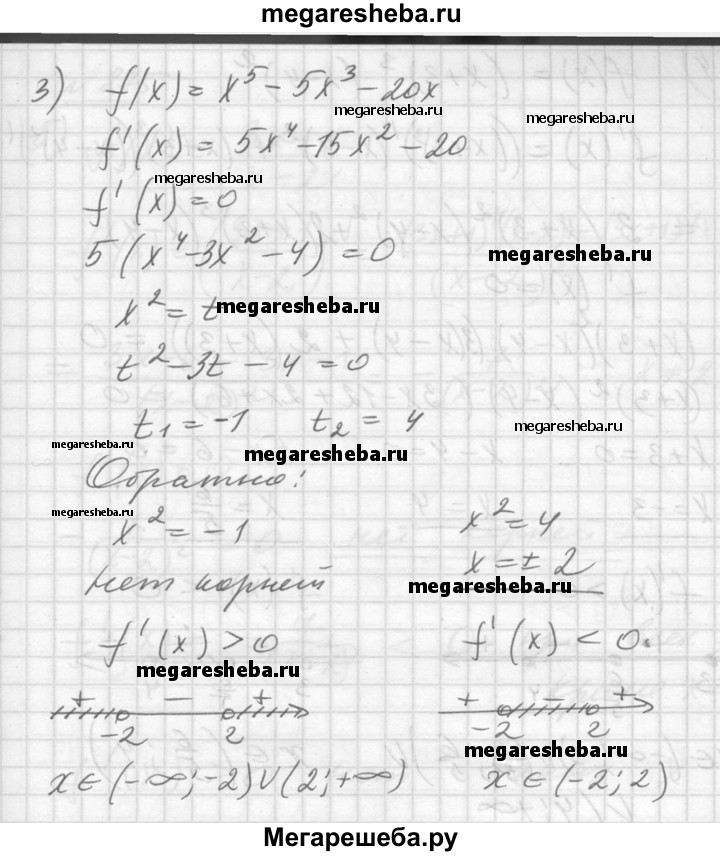 megaresheba.ru
3) f(x) = x⁵ - 5x³ - 20x
megaresheba.ru
megaresheba.ru
f'(x) = 5x⁴ - 15x² - 20
megaresheba.ru
f'(x) = 0
5(x⁴ - 3x² - 4) = 0
megaresheba.ru
x² = t
megaresheba.ru
t² - 3t - 4 = 0
t₁ = -1 t₂ = 4
megaresheba.ru
megaresheba.ru
megaresheba.ru
Обратно:
megaresheba.ru
x² = -1 x² = 4
x = ± 2
нет корней
megaresheba.ru
f'(x) > 0 f'(x) < 0
megaresheba.ru
+ - + + - +
-2 2 -2 2
megaresheba.ru
x ∈ (-∞; -2) ∪ (2; +∞) x ∈ (-2; 2)
Мегарешеба.ру